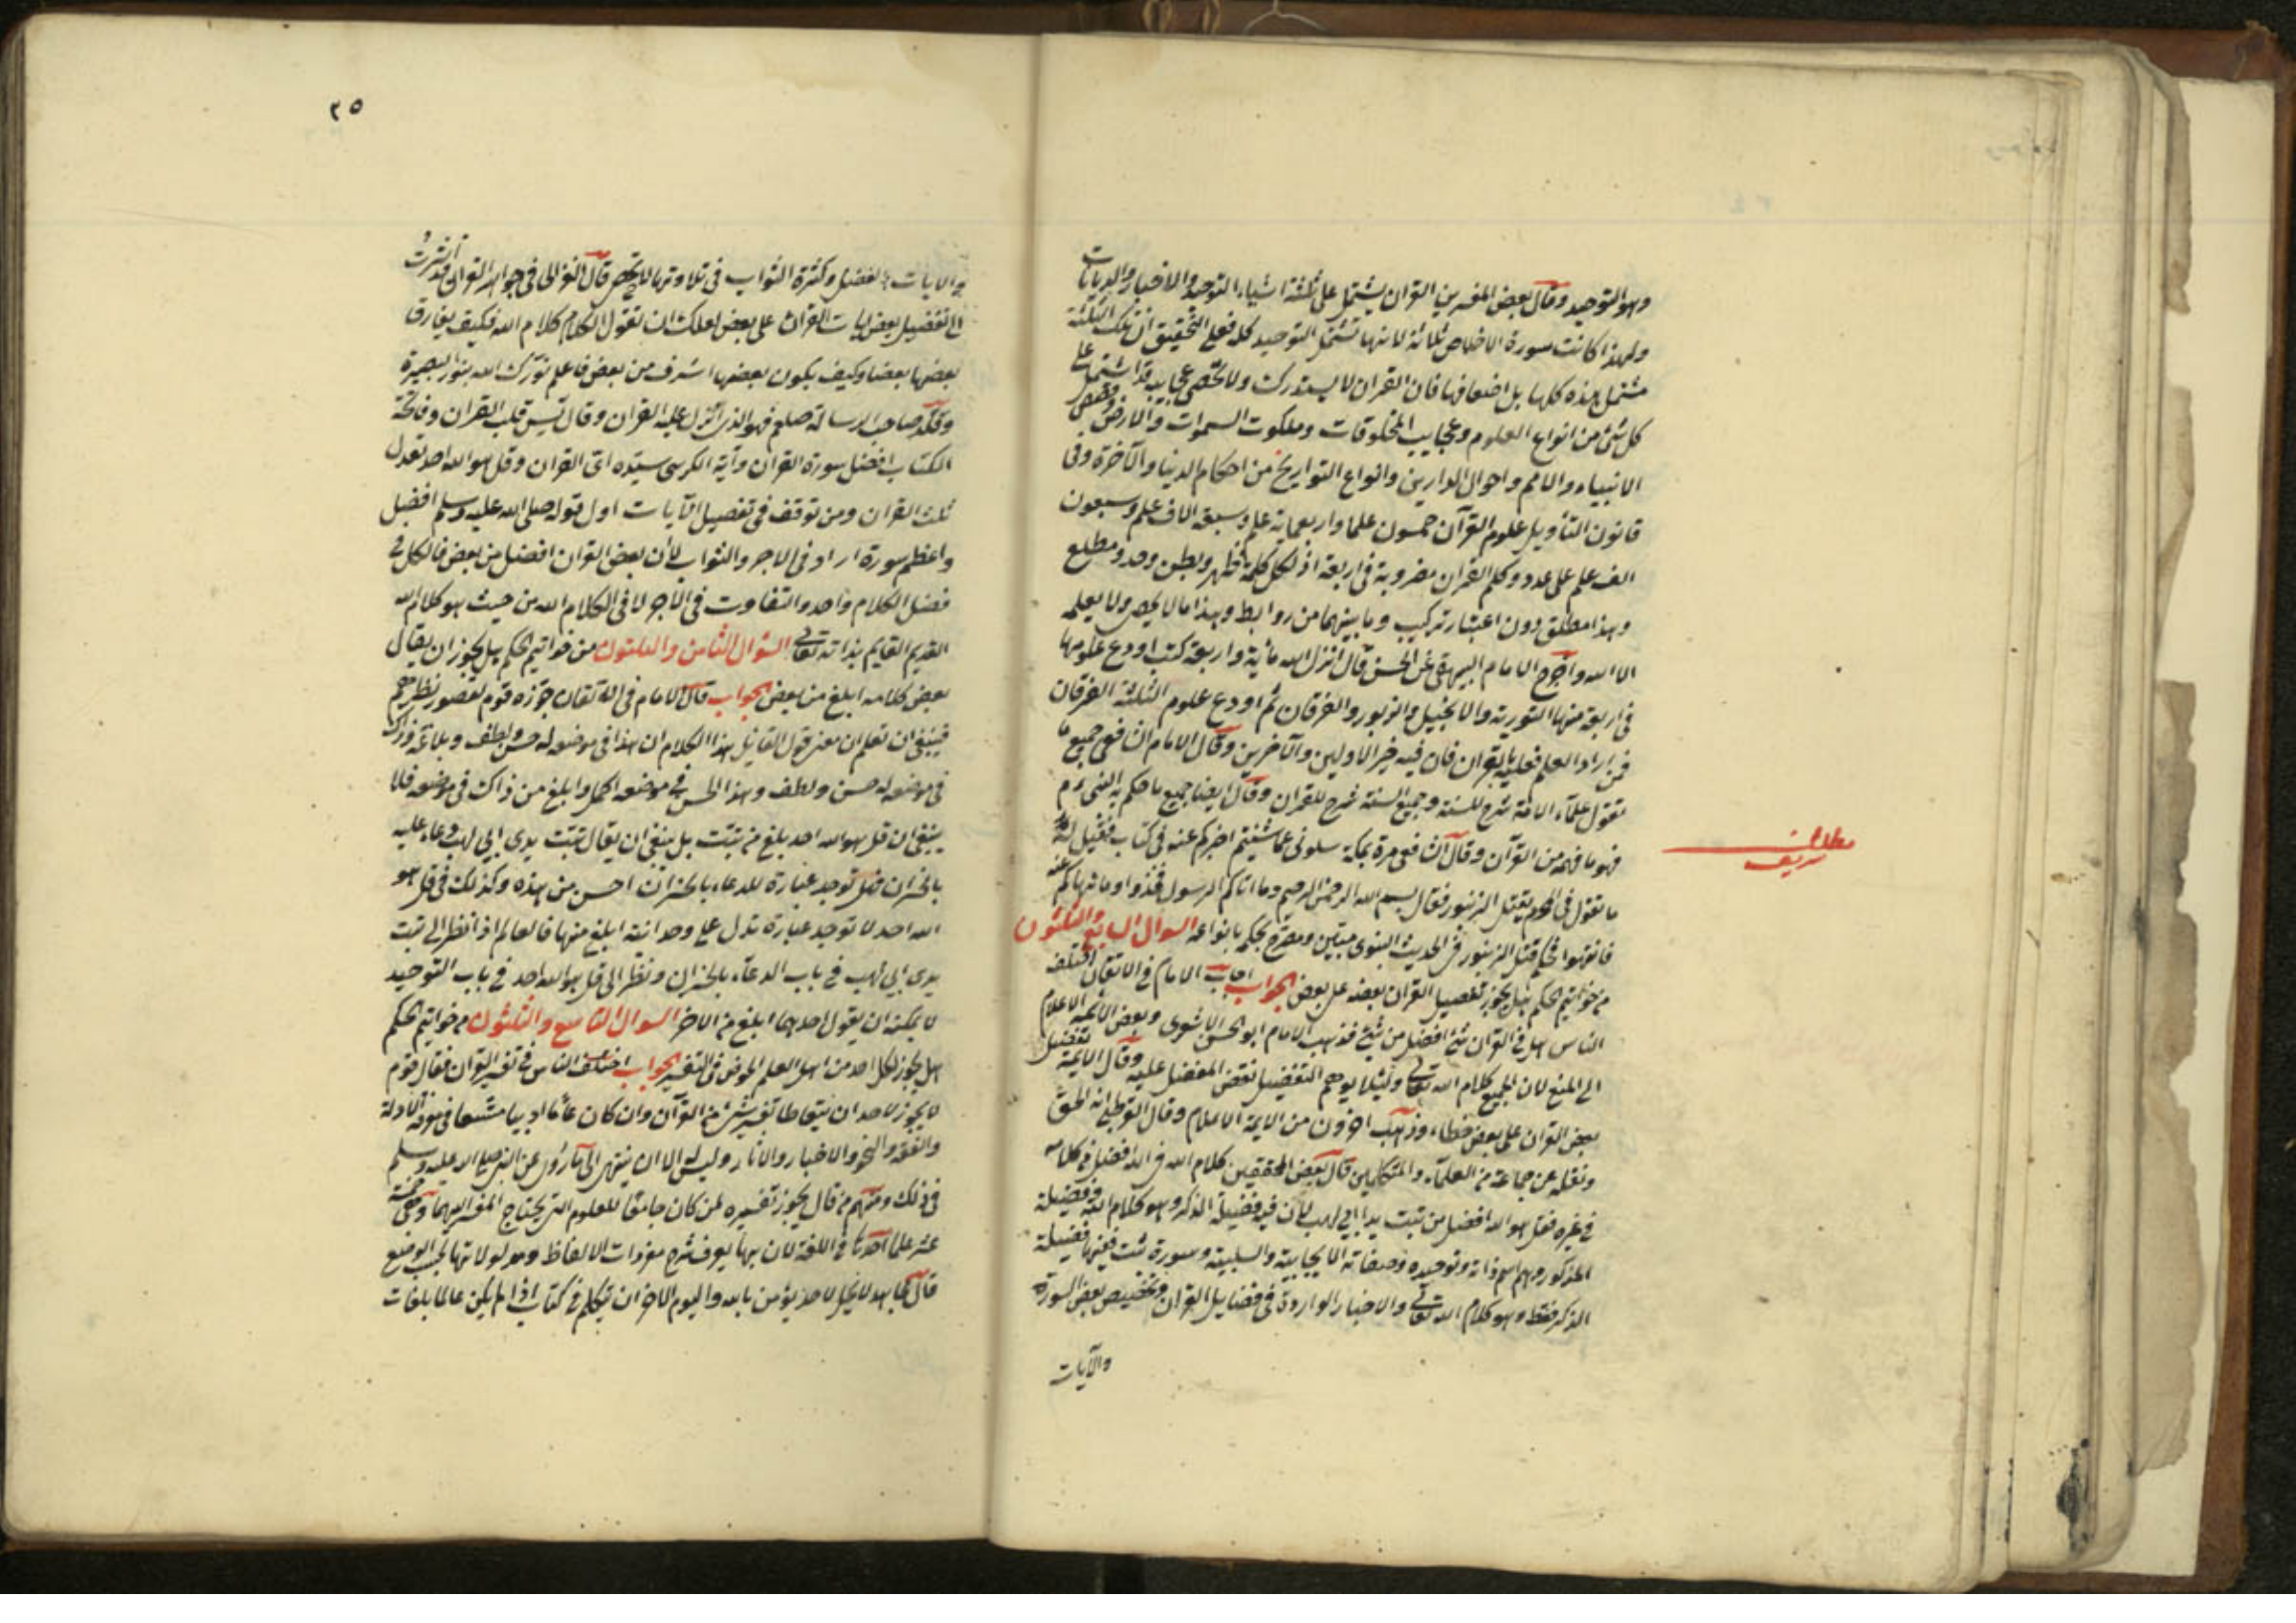 وهو التوحيد وقال بعض المفسرين القران يشتمل على ثلثة اشياء التوحيد والاخبار والديانات
ولهذا كانت سورة الاخلاص ثلثه لانها تشتمل التوحيد كله فعلى التحقيق ان تلك الثلثة
مشتمل هذه كلها بل اضعافها فان القران لا يستدرك ولا تحصى عجايبه قد اشتمل على
كل شئ من انواع العلوم وعجايب المخلوقات وملكوت السموات والارض وقصص
الانبياء والامم واحوال الدارين وانواع التواريخ من احكام الدنيا والآخرة وفى
قانون التأويل علوم القرآن خمسون علما واربعماية علم وسبعة الاف علم وسبعون
الف علم على عدد وكلم القران مضروبة فى اربعة اذ لكل كلمة ظهر وبطن وحد ومطلع
وهذا مطلق دون اعتبار تركيب وما بينهما من روابط وهذا ما لا يحصى ولا يعلمه
الا الله واخرج الامام البيهقى عن الحسن قال انزل الله مأية واربعة كتب اودع علومها
فى اربعة منها التورية والانجيل والزبور والفرقان ثم اودع علوم الثلثة الفرقان
فمن اراد العلم فعليه بالقران فان فيه خبر الاولين والآخرين وقال الامام الشافعى جميع ما
تقول علمآء الامة شرح للسنة وجميع السنة شرح للقران وقال ايضا جميع ما حكم به النبى عم
فهو ما فهمه من القرآن وقال الشافعى مرة بمكة سلونى عما شئتم اخبركم عنه فى كتاب فقيل له
ما تقول فى المحرم يقتل الزنبور فقال بسم الله الرحمن الرحيم وما اتاكم الرسول فخذوا وما نهاكم عنه
فانتهوا قتل الزنبور فى الحديث النبوى مبين ومصرح بحكم بانواعه السوال السابع والثلثون
من خواتيم الحكم هل يجوز تفضيل القران بعضه على بعض الجواب اجاب الامام فى الاتقان اختلف
الناس هل فى القران شئ افضل من شئ فذهب الامام ابو الحسن الاشعرى وبعض الائمة الاعلام
الى المنع لان الجميع كلام الله تعالى ولئلا يوهم التفضيل نقض المفضل عليه وقال الايمة تفضيل
بعض القران على بعض خطاء وذهب اخرون من الايمة الاعلام وقال القرطبى انه الحق
ونقله عن جماعة من العلمآء والمتكلمين قال بعض المحققين كلام الله فى الله افضل من كلامه
فى غيره فقل هو الله افضل من تبت يدا ابى لهب لأن فيه فضيلة الذكر وهو كلام الله وفضيلة
المذكور وهو اسم ذاته وتوحيده وصفاته الايجابية والسلبية وسورة تبت فيها فضيلة
الذكر فقط وهو كلام الله تعالى والاخبار الواردة فى فضايل القران وتخصيص بعض السورة
والآيات
شريف
٢٥
والايات بالفضل وكثرة الثواب فى تلاوتها لا تحصى قال الغزالى فى جواهر القران قد اشرت
الى تفضيل بعض ايات القران على بعض لعلك ان تقول الكلام كلام الله فكيف يفارق
بعضها بعضا وكيف يكون بعضها اشرف من بعض فاعلم نورك الله بنور البصيرة
وقلد صاحب الرسالة صلعم فهو الذى انزل عليه القران وقال يس قلب القران وفاتحة
الكتاب افضل سورة القران وآية الكرسى سيده اى القران وقل هو الله احد تعدل
ثلث القران ومن توقف فى تفضيل الآيات اول قوله صلى الله عليه وسلم افضل
واعظم سورة اراد فى الاجر والثواب لأن بعض القران افضل من بعض فالكل فى
فضل الكلام واحد والتفاوت فى الاجر لا فى الكلام الله من حيث هو كلام الله
القديم القايم بذاته تعالى السؤال الثامن والثلثون من خواتيم الحكم هل يجوز ان يقال
بعض كلامه ابلغ من بعض الجواب قال الامام فى الاتقان جوزه قوم لقصور نظرهم
فينبغى ان تعلم ان معنى قول القايل هذا الكلام ان هذا فى موضعه له حسن ولطف وبلاغة وذاك
فى موضعه له حسن ولطف وهذا الحسن فى موضعه اكمل وابلغ من ذاك فى موضعه فلا
ينبغى ان قل هو الله احد ابلغ من تبت بل ينبغى ان يقال تبت يدى ابى لهب دعاء عليه
بالخسران فهل توجد عبارة للدعاء بالخسران احسن من هذه وكذلك فى قل هو
الله احد لا توجد عبارة تدل على وحدانيته ابلغ منها فالعالم اذا نظر الى تبت
يدى ابى لهب فى باب الدعآء بالخسران ونظر الى قل هو الله احد فى باب التوحيد
لا يمكنه ان يقول احدهما ابلغ من الاخر السوال التاسع والثلثون من خواتيم الحكم
هل يجوز لكل احد من اهل العلم الخوض فى التفسير الجواب اختلف الناس فى تفسير القران فقال قوم
لا يجوز لاحد ان يتعاطا تفسير شئ من القرآن وان كان عالما اديبا متسعا فى معرفة الادلة
والفقه والنحو والاخبار والاثار وليس له الا ان ينتهى الى ما روى عن النبى صلى الله عليه وسلم
فى ذلك ومنهم من قال يجوز تفسيره لمن كان جامعا للعلوم التى يحتاج المفسر اليها وهى خمسة
عشر علما احدها اللغة لان بها يعرف شرح مفردات الالفاظ ومدلولاتها بحسب الوضع
قال مجاهد لا يحل لاحد يؤمن بالله واليوم الاخر ان يتكلم فى كتاب الله اذا لم يكن عالما بلغات